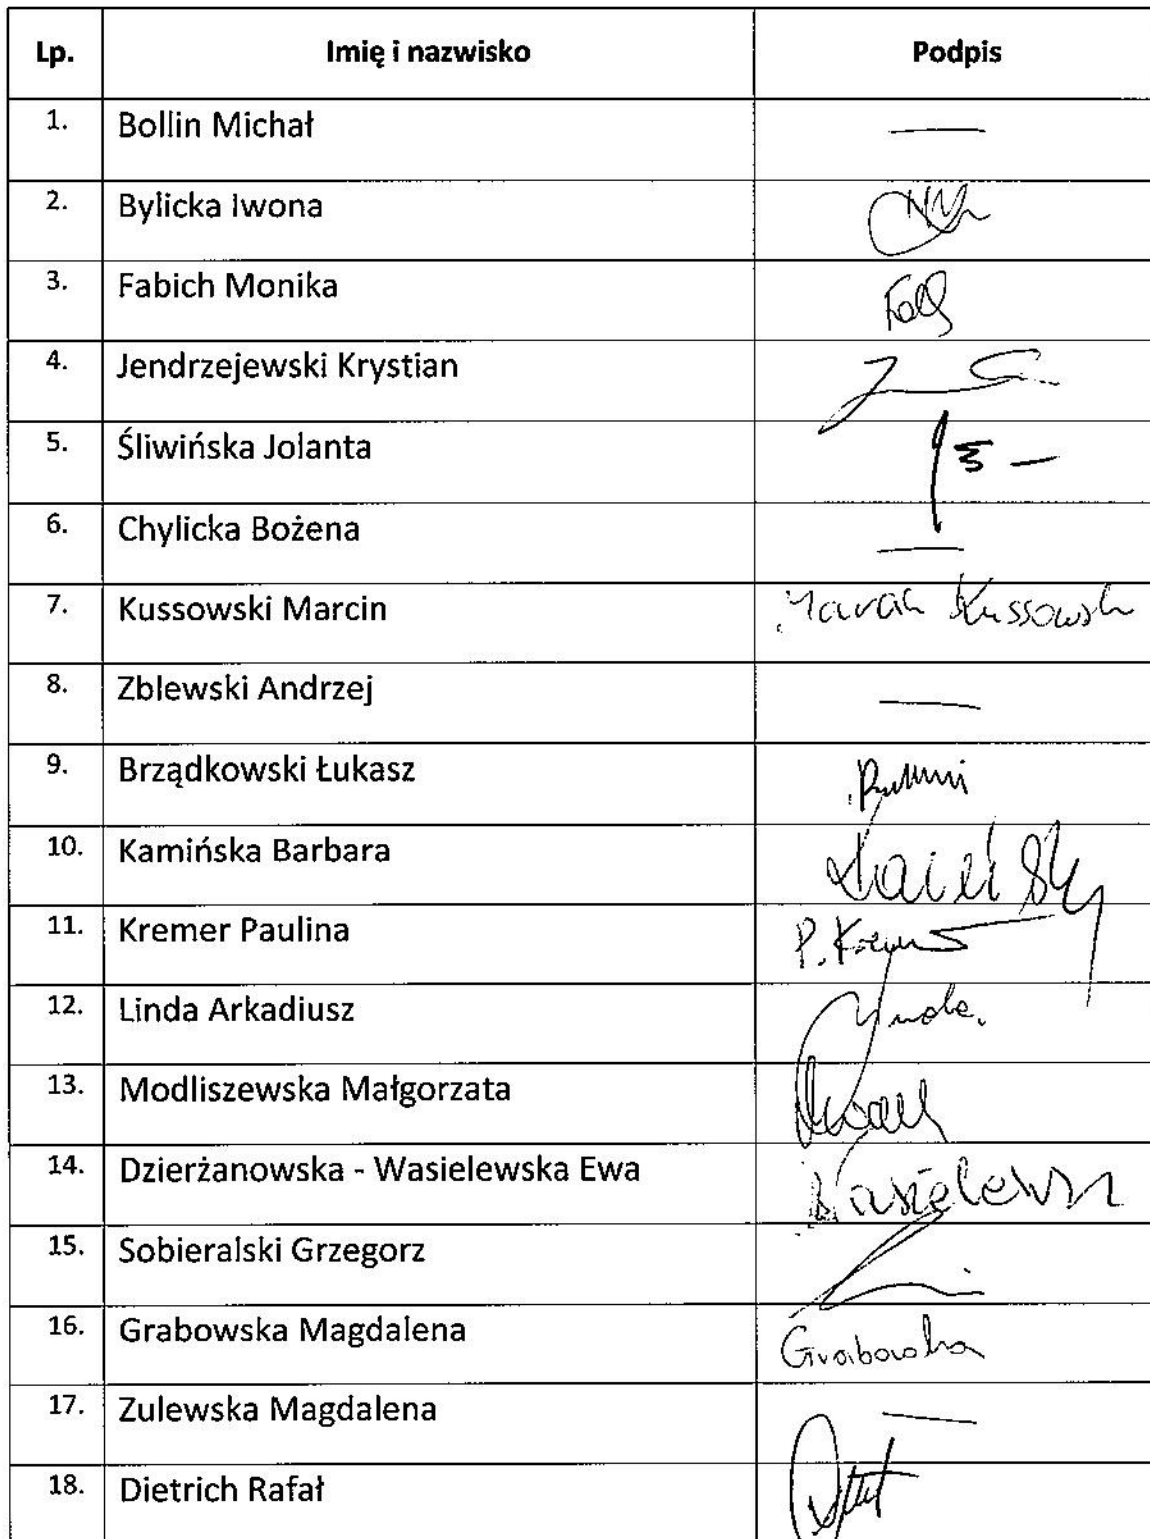 Lp. Imię i nazwisko Podpis
1. Bollin Michał —
2. Bylicka Iwona
3. Fabich Monika
4. Jendrzejewski Krystian
5. Śliwińska Jolanta
6. Chylicka Bożena —
7. Kussowski Marcin Kussowski
8. Zblewski Andrzej —
9. Brządkowski Łukasz
10. Kamińska Barbara
11. Kremer Paulina P. Kremer
12. Linda Arkadiusz Linda
13. Modliszewska Małgorzata
14. Dzierżanowska - Wasielewska Ewa
15. Sobieralski Grzegorz
16. Grabowska Magdalena Grabowska
17. Zulewska Magdalena —
18. Dietrich Rafał